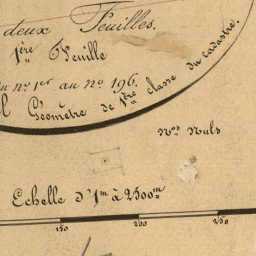 deux Feuilles.
1ère Feuille
du nº 1er au nº 196.
Géomètre de 1ère classe du cadastre.
Nos Nuls
Echelle d'1m à 2500m
150 200 250